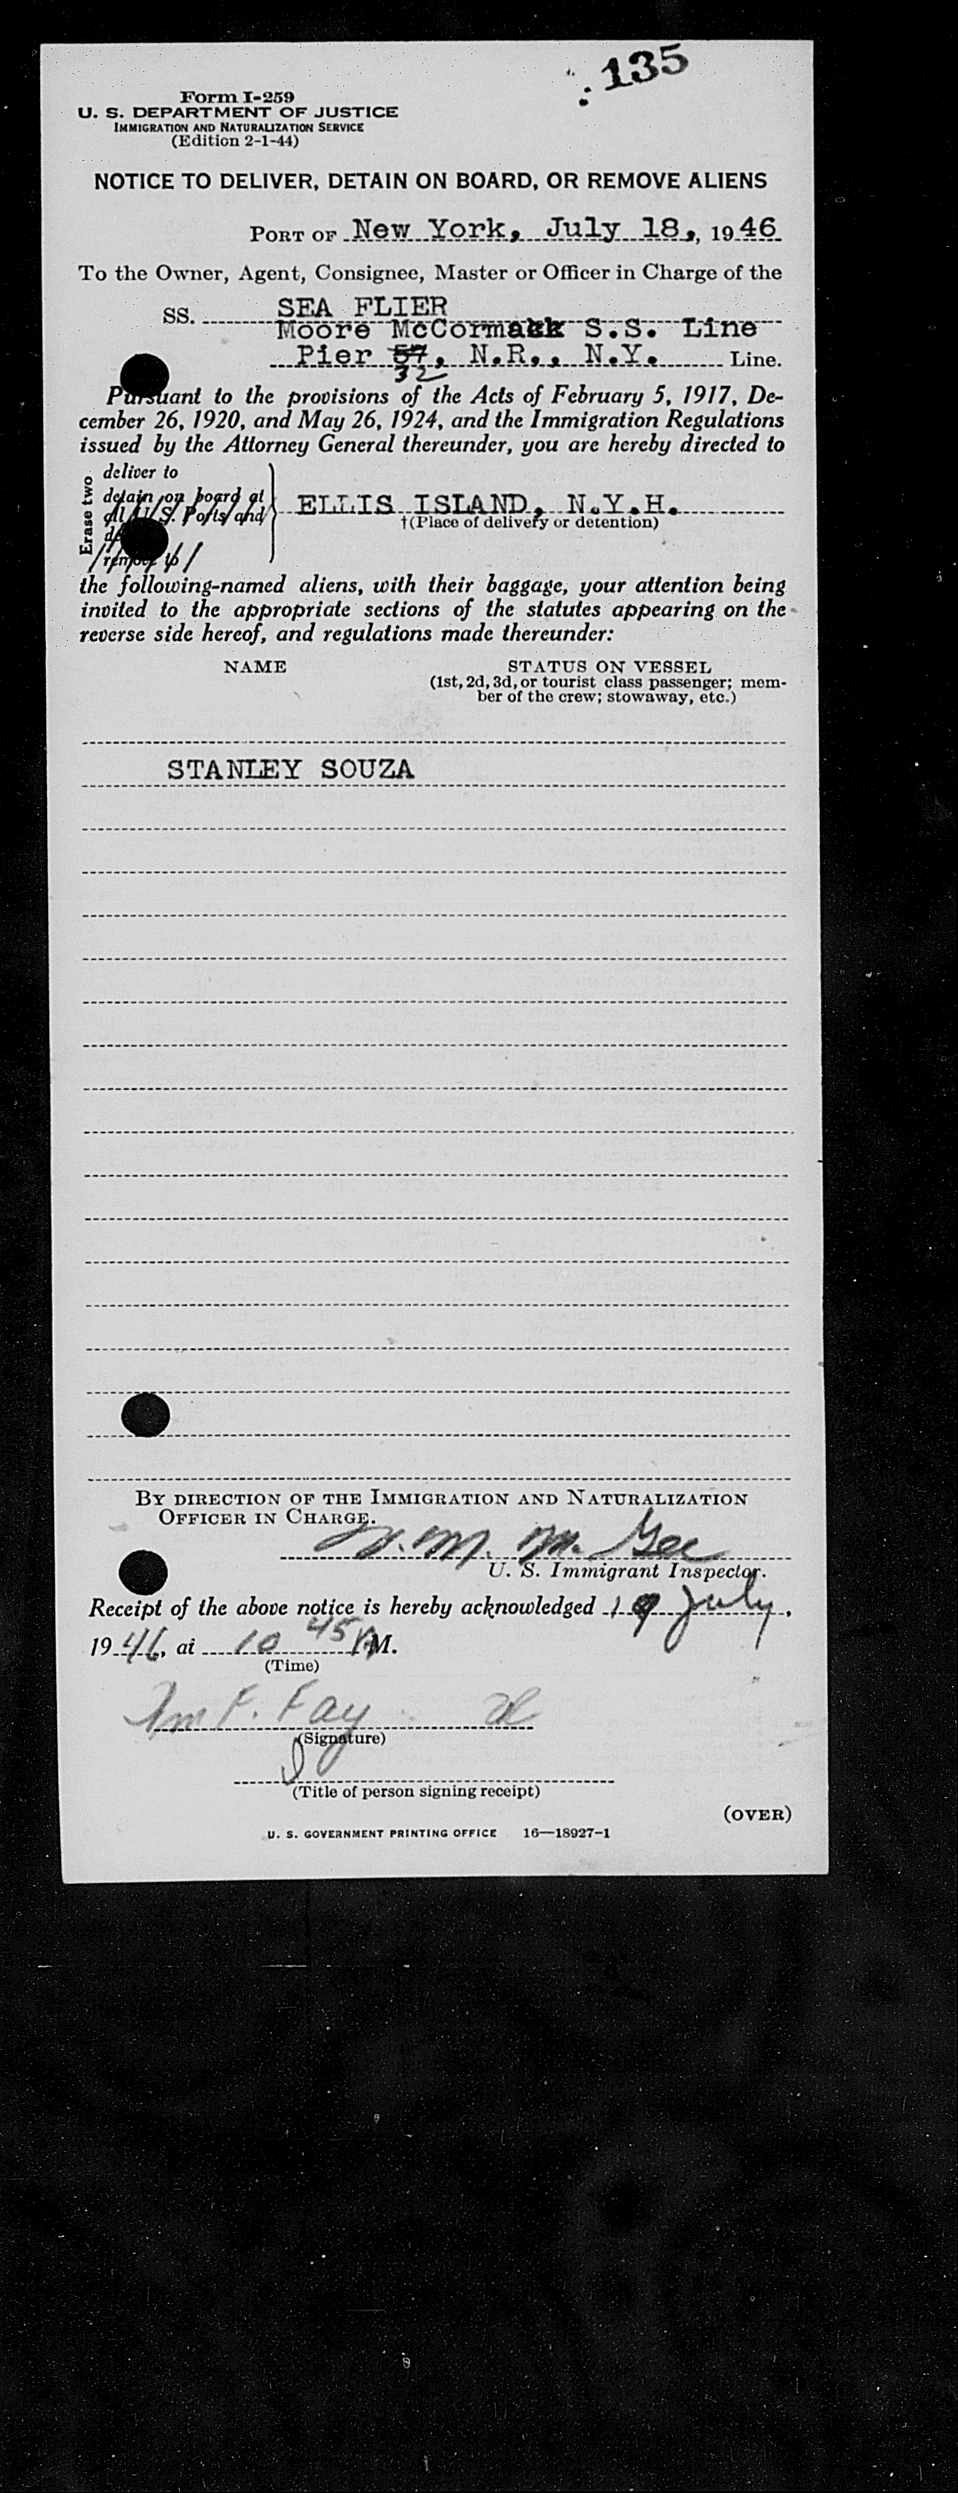 135
Form I-259
U. S. DEPARTMENT OF JUSTICE
IMMIGRATION AND NATURALIZATION SERVICE
(Edition 2-1-44)
NOTICE TO DELIVER, DETAIN ON BOARD, OR REMOVE ALIENS
PORT OF New York, July 18,, 1946
To the Owner, Agent, Consignee, Master or Officer in Charge of the
SS. SEA FLIER
Moore McCormack S.S. Line
Pier 57, N.R., N.Y. Line.
32
Pursuant to the provisions of the Acts of February 5, 1917, De-
cember 26, 1920, and May 26, 1924, and the Immigration Regulations
issued by the Attorney General thereunder, you are hereby directed to
Erase two
deliver to
detain on board at
all U.S. Ports and
remove to
ELLIS ISLAND, N.Y.H.
†(Place of delivery or detention)
the following-named aliens, with their baggage, your attention being
invited to the appropriate sections of the statutes appearing on the
reverse side hereof, and regulations made thereunder:
NAME
STATUS ON VESSEL
(1st, 2d, 3d, or tourist class passenger; mem-
ber of the crew; stowaway, etc.)
STANLEY SOUZA
BY DIRECTION OF THE IMMIGRATION AND NATURALIZATION
OFFICER IN CHARGE.
M. Gee
U. S. Immigrant Inspector.
Receipt of the above notice is hereby acknowledged 19 July,
1946, at 10 45 AM.
(Time)
F. Fay
(Signature)
(Title of person signing receipt)
(OVER)
U. S. GOVERNMENT PRINTING OFFICE 16—18927-1